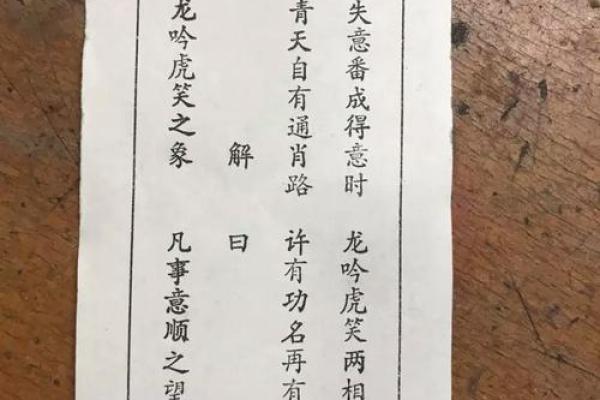 失意番成得意时 龙吟虎笑两相
青天自有通肖路 许有功名再有
解曰
龙吟虎笑之象 凡事意顺之望